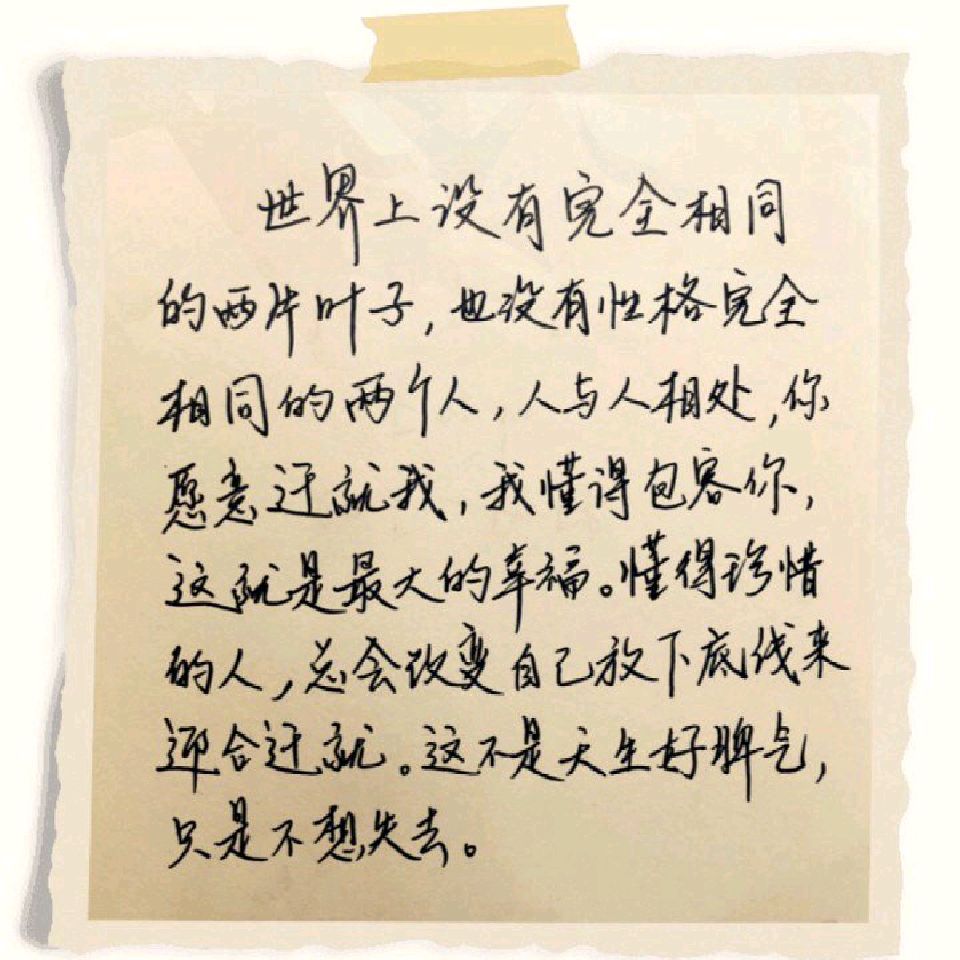 世界上没有完全相同
的两片叶子，也没有性格完全
相同的两个人，人与人相处，你
愿意迁就我，我懂得包容你，
这就是最大的幸福。懂得珍惜
的人，总会改变自己放下底线来
迎合迁就。这不是天生好脾气，
只是不想失去。